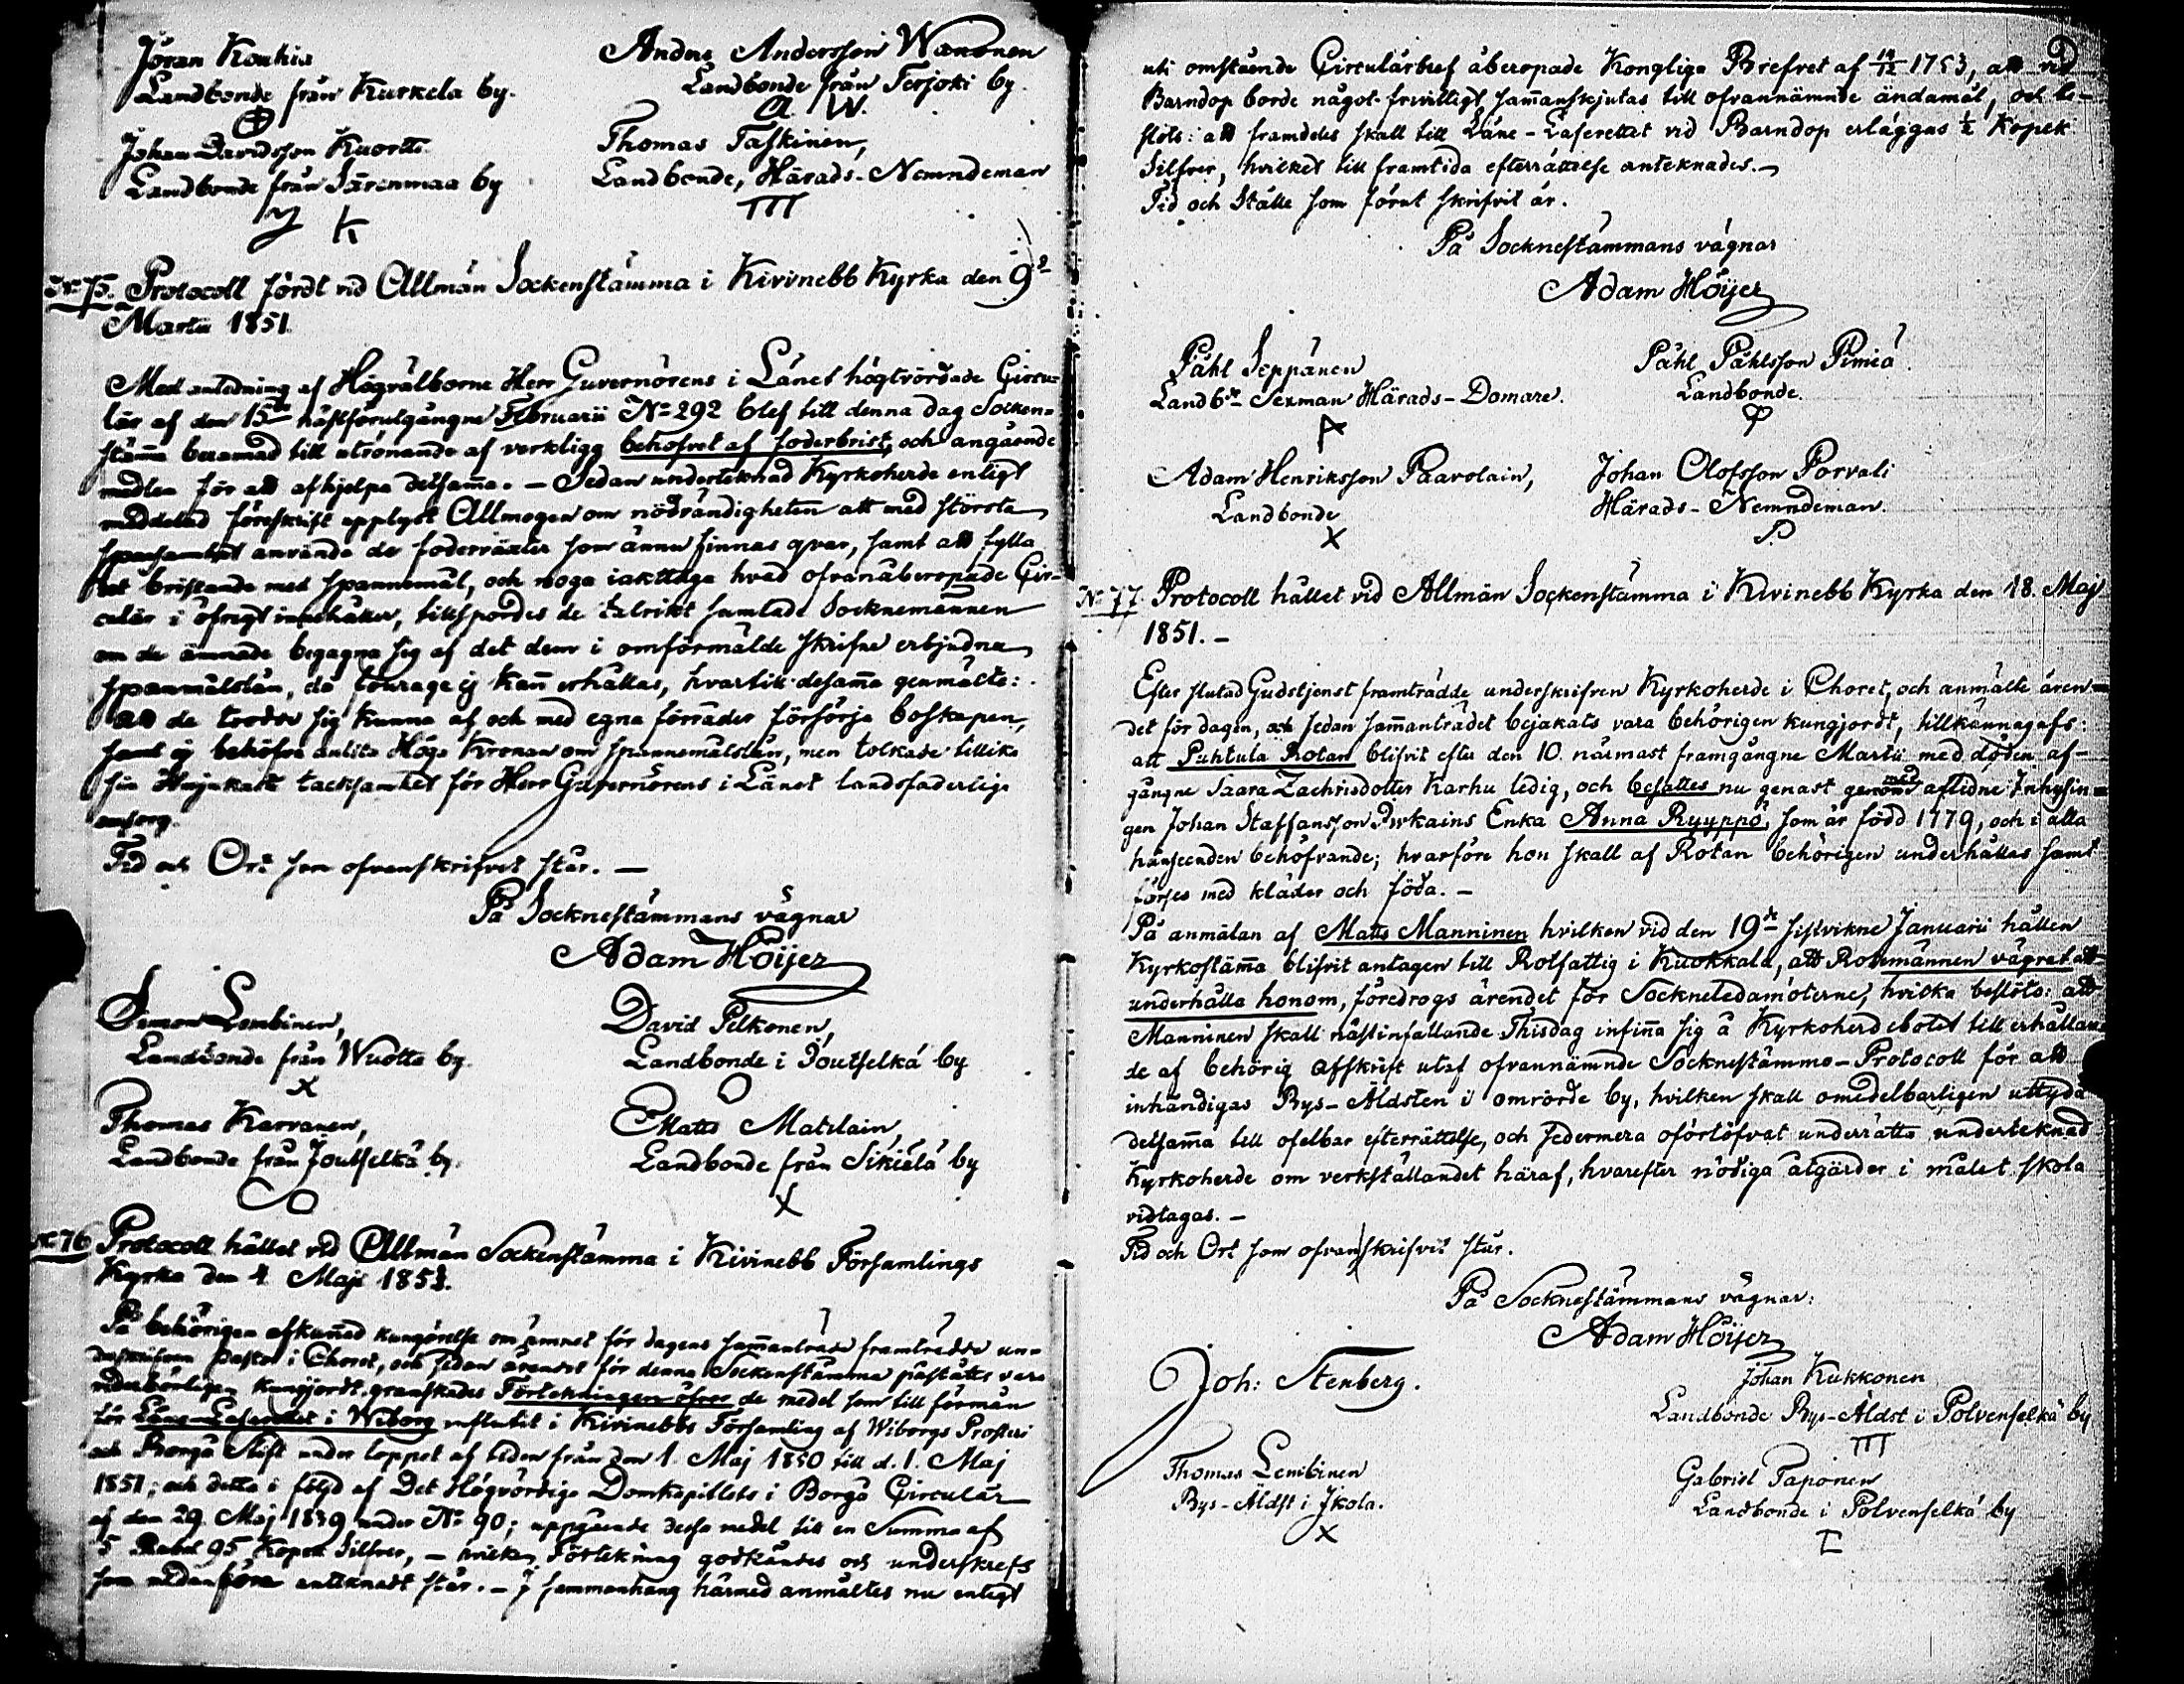 Jöran Koukia
Landbonde från Kurkela by.
Anders Andersson Wanonen
Landbonde från Terjoki by.
A. W.
Johan Davidsson Kuortti
Landbonde från Järenmaa by
K
Thomas Taskinen,
Landbonde, Härads-Nemndeman
III
No 75. Protocoll fördt vid Allmän Sockenstämma i Kivinebb Kyrka den 9de
Martii 1851.
Med anledning af Högvälborne Herr Guvernörens i Länet högtvördade Circu-
lär af den 15de nästförutgångne Februarii No 292 blef till denna dag Socken-
stämma beramad till utrönande af verkligg behofvet af foderbrist, och angående
medlen för att afhjelpa detsamma. - Sedan undertecknad Kyrkoherde enligt
meddelad föreskrift upplyst Allmogen om nödvändigheten att med största
sparsamhet använda de foderväxter som ännu finnas qvar, samt att fylla
det bristande med spannemål, och noga iakttaga hvad ofvanåberopade Cir-
culär i öfrigt innehåller, tillspordes de talrikt samlade Socknemännen
om de ämnade begagna sig af det dem i omförmälde skrifne erbjudna
spanmålslån, då fourage ej kan erhållas, hvartill desamma genmälte:
att de trodde sig kunna af och med egna förråder försörja boskapen,
samt ej behöfva anlita Höga Kronan om spannemålslån, men tolkade tillika
sin Ödmjukaste tacksamhet för Herr Guvernörens i Länet landsfaderliga
omsorg.
Tid och Ort som ofvanskrifvet står. -
På Socknestämmans vägnar
Adam Höijer
Simon Lembinen,
Landbonde från Wuotta by.
X
David Pelkonen,
Landbonde i Joutselkä by
O
Thomas Karvanen,
Landbonde från Joutselkä by.
Matts Matilain,
Landbonde från Sikiälä by
X
No 76 Protocoll hållet vid Allmän Sockenstämma i Kivinebb Församlings
Kyrka den 4. Maji 1851.
På behörigen afkunnad kungörelse om ämnet för dagens sammanträde framträdde un-
derskrifven Pastor i Choret, och sedan ärendet för denna Sockenstämma påståtts vara
vederbörligen kungjordt, granskades Förtekningen öfver de medel som till förmån
för Läns-Lasarettet i Wiborg influtit i Kivinebbs Församling af Wiborgs Prosteri
och Borgå Stift under loppet af tiden från den 1. Maj 1850 till d. 1. Maj
1851; och detta i följd af Det Högvördiga Domkapitlets i Borgå Circulär
af den 29. Maj 1839 under No 90; uppgående dessa medel till en Summa af
5 Rubel 95 Kopek Silfver, - hvilken Förtekning godkändes och underskrefs
som nedanföre anteknadt står. - I sammanhang härmed anmältes nu enligt
uti omstående Circulärbref åberopade Kongliga Brefvet af 14/12 1753, att vid
Barndop borde något frivilligt sammanskjutas till ofvannämnde ändamål, och be-
slöts: att framdeles skall till Läne-Laserettet vid Barndop erläggas 1/2 Kopek
Silfver, hvilket till framtida efterrättelse anteknades. -
Tid och Ställe som förut skrifvit är.
På Socknestämmans vägnar
Adam Höijer
Påhl Seppänen
Landb:de Sexman Härads-Domare.
Påhl Påhlsson Pimiä
Landbonde.
Adam Henriksson Paavolain,
Landbonde
X
Johan Olofsson Porvali
Härads-Nemndeman.
P.
No 77. Protocoll hållet vid Allmän Sockenstämma i Kivinebb Kyrka den 18. Maj
1851. -
Efter slutad Gudstjenst framträdde underskrifven Kyrkoherde i Choret, och anmälte ären-
det för dagen, och sedan sammanträdet bejakats vara behörigen kungjordt, tillkännagafs:
att Puhtula Rotan blifvit efter den 10. närmast framgångne Martii med döden af-
gångne Saara Zachrisdotter Karhu ledig, och besattes nu genast genom med aflidne Inhysin-
gen Johan Staffansson Pirkains Enka Anna Ryyppö, som är född 1779, och i alla
hänseenden behöfvande; hvarföre hon skall af Rotan behörigen underhållas samt
förses med kläder och föda. -
På anmälan af Matts Manninen hvilken vid den 19de sistvikne Januarii hållen
Kyrkostämma blifvit antagen till Rotfattig i Kuokkala, att Rotemännen vägrat att
underhålla honom, föredrogs ärendet för Socknoledamöterne, hvilka beslöto: att
Manninen skall nästinfallande Thisdag infinna sig å Kyrkoherdebolet till erhållan-
de af behörig afskrift utaf ofvannämnde Socknestämmo-Protocoll för att
inhändigas Bys-Äldsten i omrörde by, hvilken skall omedelbarligen uttyda
detsamma till ofelbar efterrättelse, och sedermera oförtöfvat underrätta underteknad
Kyrkoherde om verkställandet häraf, hvarefter nödiga åtgärder i målet skola
vidtagas. -
Tid och Ort som ofvanskrifvit står.
På Socknestämmans vägnar:
Adam Höijer
Joh: Stenberg.
Johan Kukkonen
Landbonde Bys-Äldst i Polvenselkä by
III
Thomas Lembinen
Bys-Äldst i Ikola.
X
Gabriel Taponen
Landbonde i Polvenselkä by